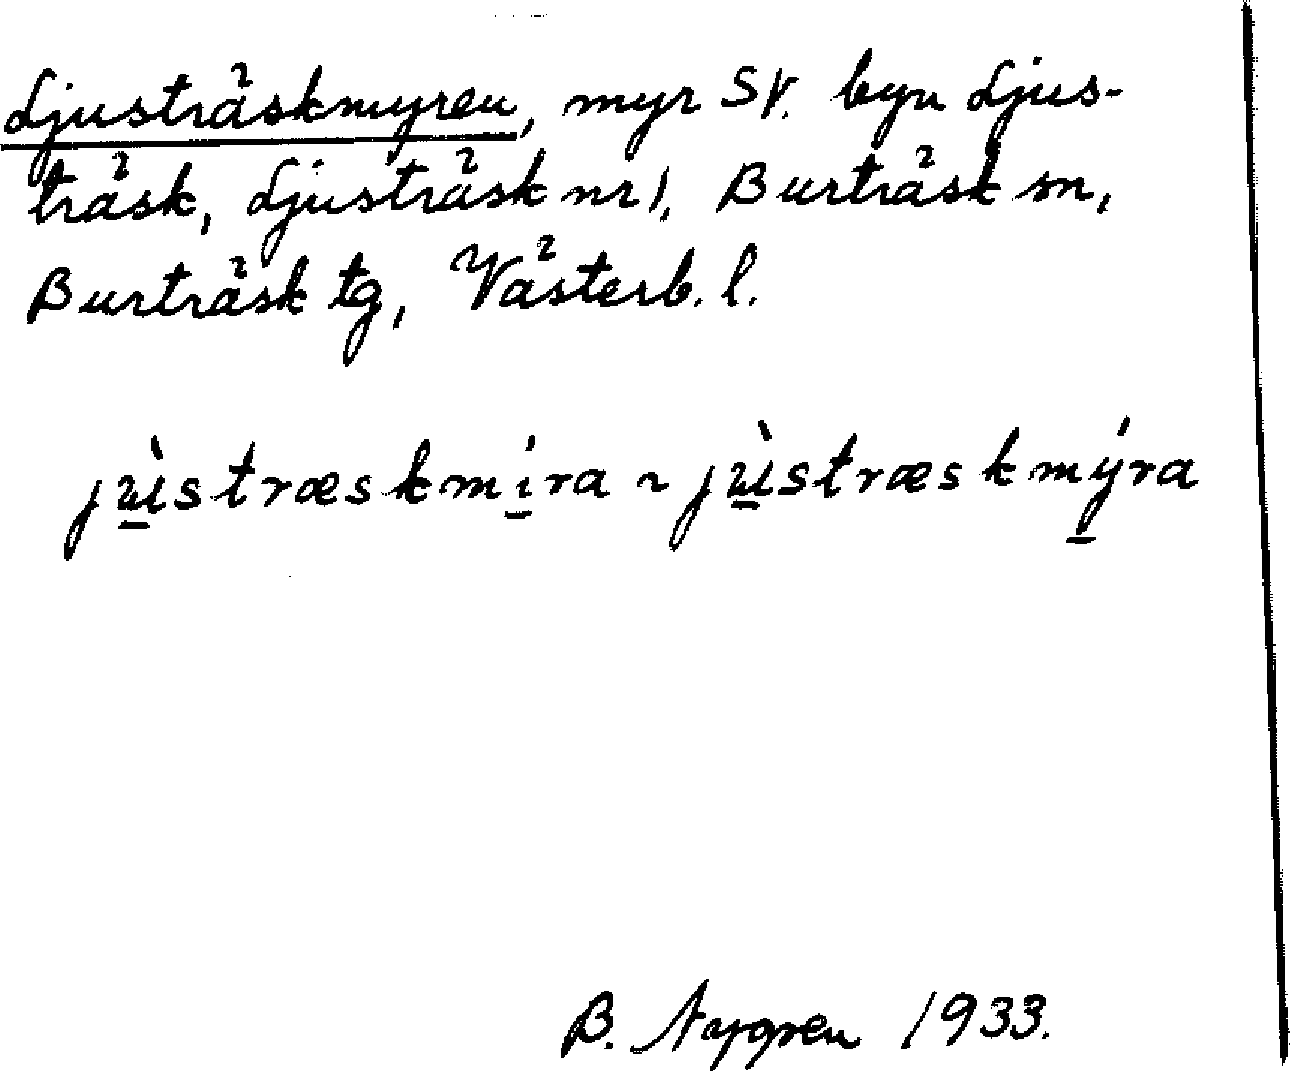 Ljusträskmyren, myr SV. byn Ljus-
träsk, Ljusträsk nr 1, Burträsk sn,
Burträsk tg, Västerb. l.
jù̱stræskmí̱ra ~ jù̱stræskmý̱ra
B. Nygren 1933.